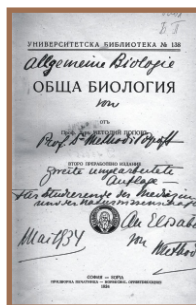 УНИВЕРСИТЕТСКА БИБЛИОТЕКА № 138
Allgemeine Biologie
ОБЩА БИОЛОГИЯ
von
отъ
Проф. МЕТОДИЙ ПОПОВЪ
Prof. Dr Methodi Popoff
ВТОРО ПРЕРАБОТЕНО ИЗДАНИЕ
zweite umgearbeitete
Auflage
für Studierende der Medizin
und der Naturwissenschaften
An Elisabeth
von
Method
Mai 1934
СОФИЯ — SOFIA
ПРИДВОРНА ПЕЧАТНИЦА
1934